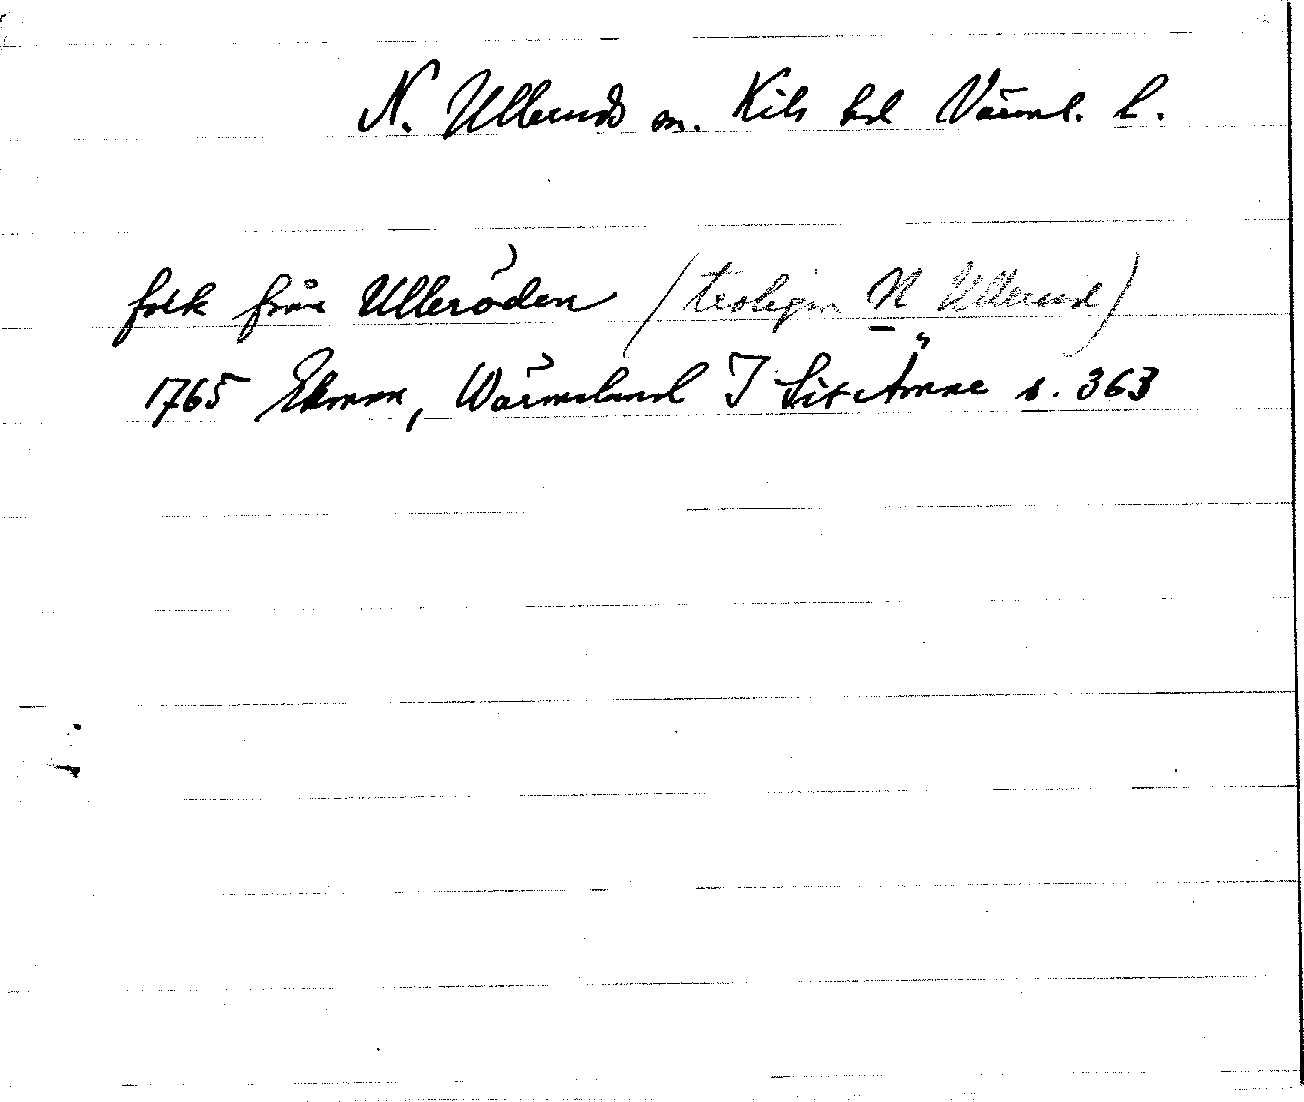 N. Ulleruds sn. Kils hd Värml. l.
folk från Ulleröden (troligen N Ullerud)
1765 Ekman, Wärmeland I Sit Ämne s. 363